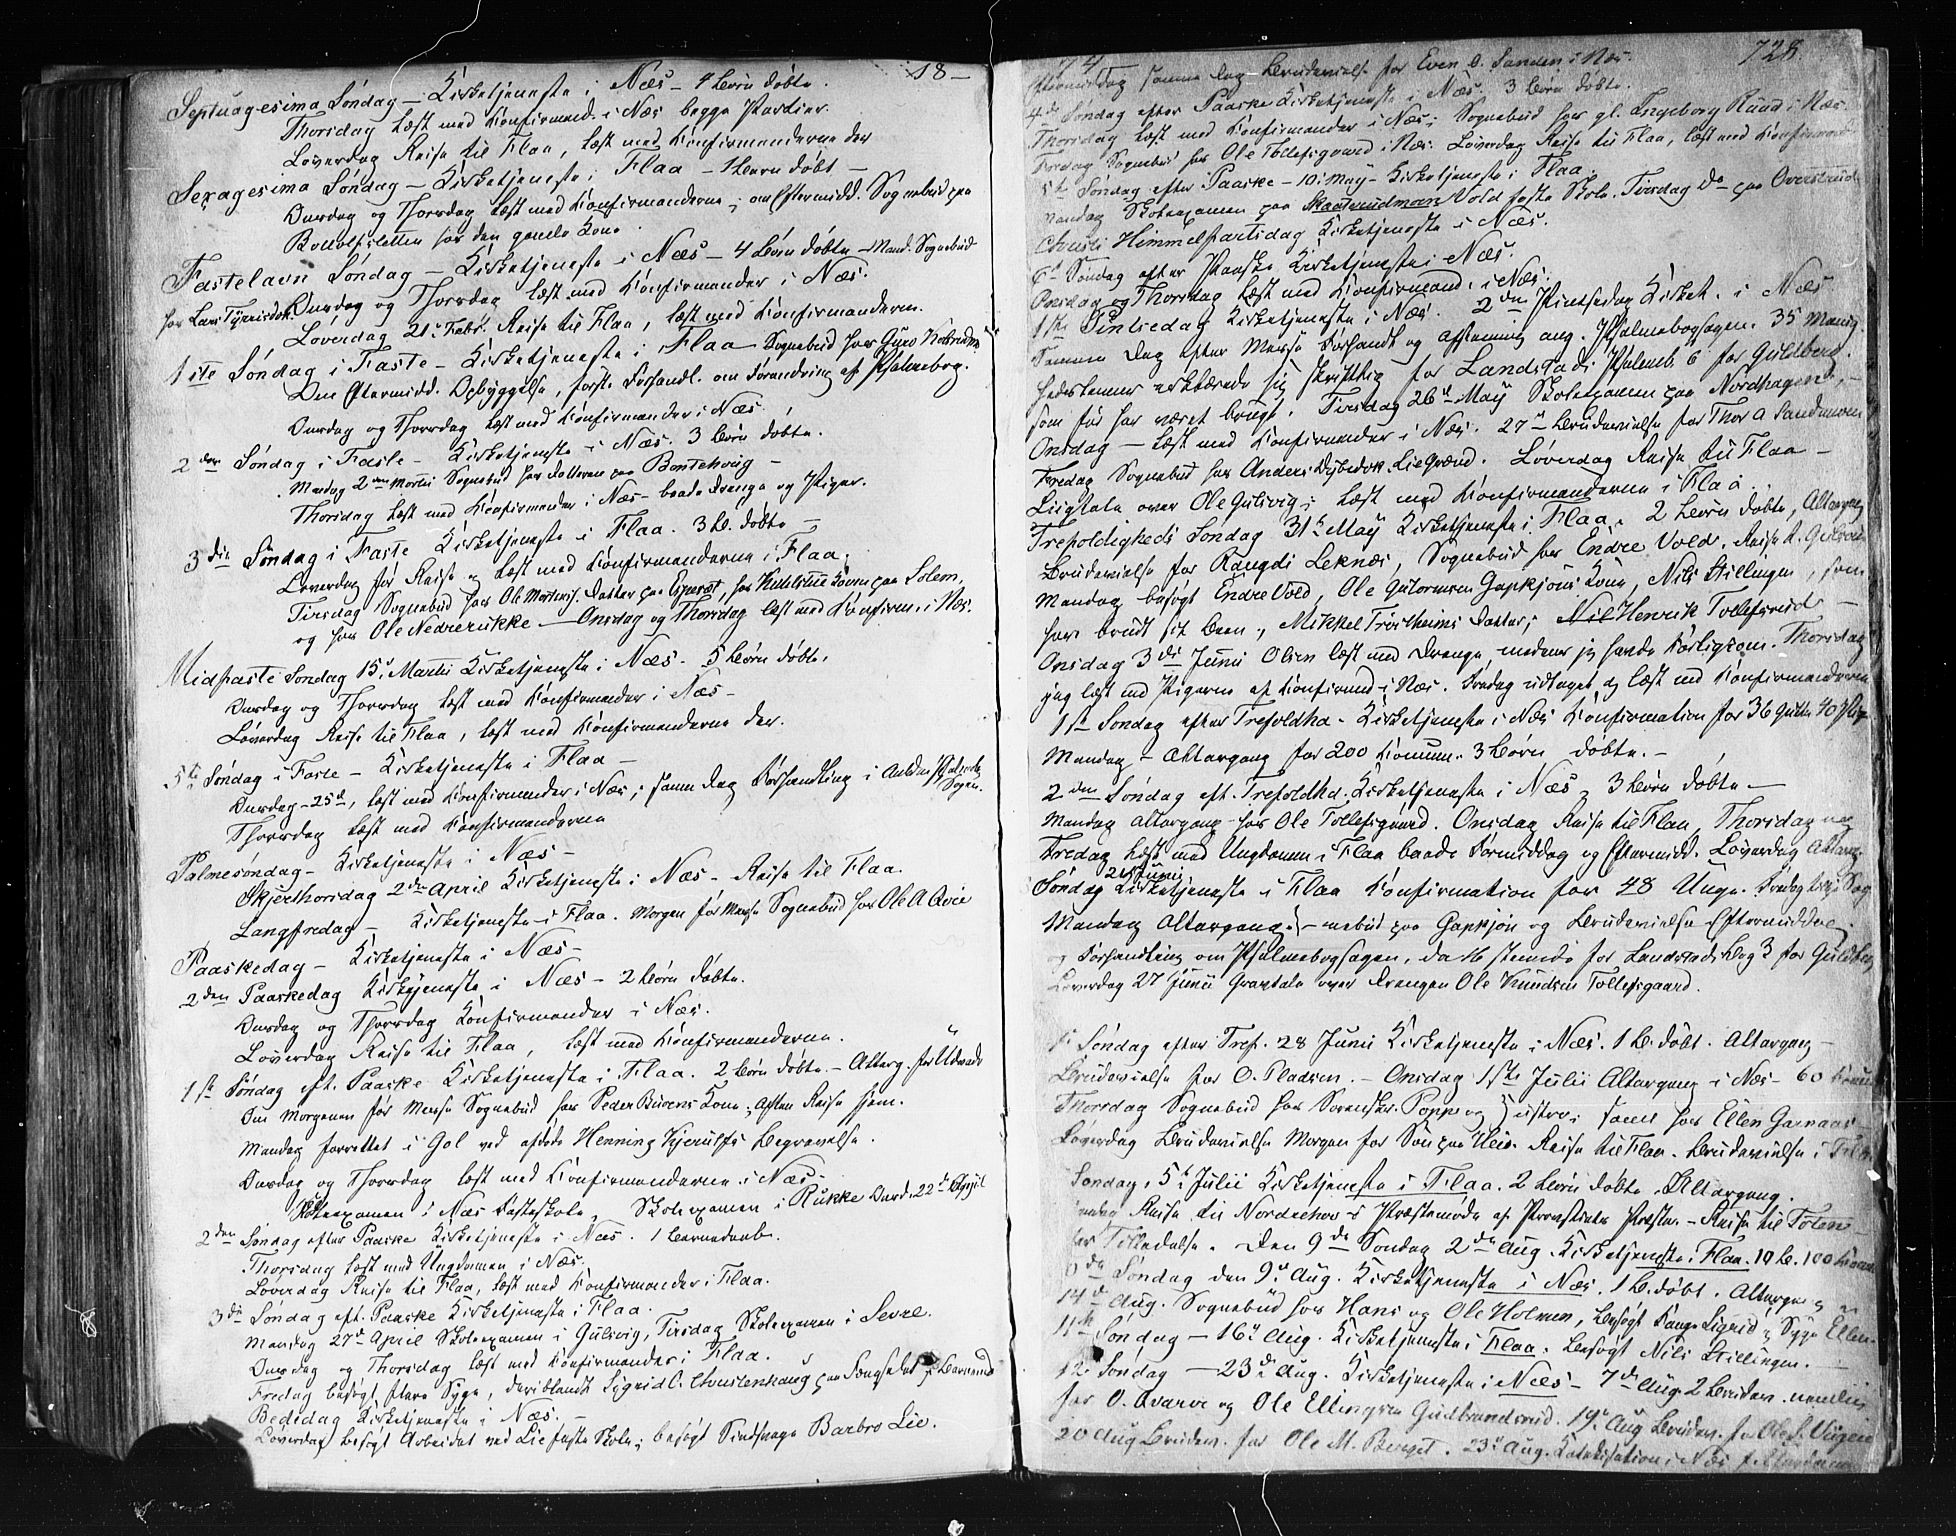 18-
Septuagesima Søndag - Kirketjeneste i Næs - 4 Børn døbte.
Thorsdag læst med Konfirmand. i Næs begge Partier.
Løverdag Reise til Flaa, læst med Konfirmanderne der
Sexagesima Søndag - Kirketjeneste i Flaa - 1 Barn døbt -
Onsdag og Thorsdag læst med Konfirmanderne; om Eftermidd. Sognebud paa
Bottolfsletten for den gamle Kone.
Fastelavn Søndag - Kirketjeneste i Næs - 4 Børn døbte - Mand. Sognebud
for Lars Onsdag og Thorsdag læst med Konfirmander i Næs.
Løverdag 21de Febr. Reise til Flaa, læst med Konfirmanderne.
1ste Søndag i Faste - Kirketjeneste i Flaa - Sognebud hos Guro
Den Eftermidd. Opbyggelse, første Forhandl. om Forandring af Psalmebog.
Onsdag og Thorsdag læst med Konfirmander i Næs.
2den Søndag i Faste - Kirketjeneste i Næs. 3 Børn døbte.
Mandag 2den Martii Sognebud hos Datteren paa
Thorsdag læst med Konfirmander i Næs - baade Drenge og Piger.
3die Søndag i Faste Kirketjeneste i Flaa. 3 B. døbte -
Løverdag før Reise og læst med Konfirmanderne i Flaa.
Tirsdag Sognebud hos Ole Mortens. Datter paa Espeset, for Konen paa Solem,
og hos Ole Nedrerukke - Onsdag og Thorsdag læst med Konfirm. i Næs.
Midfaste Søndag 15de Martii Kirketjeneste i Næs. 5 Børn døbte.
Onsdag og Thorsdag læst med Konfirmander i Næs -
Løverdag Reise til Flaa, læst med Konfirmanderne der.
5te Søndag i Faste - Kirketjeneste i Flaa -
Onsdag - 25de, læst med Konfirmander i Næs; samme Dag Forhandling i Psalmebog
Sagen.
Thorsdag læst med Konfirmanderne
Palmesøndag - Kirketjeneste i Næs -
Skjerthorsdag 2den April Kirketjeneste i Næs - Reise til Flaa.
Langfredag - Kirketjeneste i Flaa. Morgen før Messe Sognebud hos Ole A
Paaskedag - Kirketjeneste i Næs -
2den Paaskedag Kirketjeneste i Næs - 2 Børn døbte.
Onsdag og Thorsdag Konfirmander i Næs.
Løverdag Reise til Flaa, læst med Konfirmanderne.
1ste Søndag eft. Paaske Kirketjeneste i Flaa. 2 Børn døbte. - Alterg. for
Om Morgenen før Messe Sognebud hos Peder Kone; Aften Reise hjem.
Mandag forrettet i Gol ved afdøde Henning Kjerulfs Begravelse.
Onsdag og Thorsdag læst med Konfirmanderne i Næs -
Skoleexamen i Næs Fasteskole, Skoleexamen i Rukke Onsd. 22de April
2den Søndag efter Paaske Kirketjeneste i Næs. 1 Barnedaab.
Thorsdag læst med Ungdommen i Næs.
Løverdag Reise til Flaa, læst med Konfirmander i Flaa.
3die Søndag eft. Paaske Kirketjeneste i Flaa.
Mandag 27de April Skoleexamen i Gulsvig, Tirsdag Skoleexamen i Sevre.
Onsdag og Thorsdag læst med Konfirmander i Flaa.
Fredag besøgt flere Syge, deriblandt Sigrid C. paa
Bededag Kirketjeneste i Næs. -
Løverdag besøgt Arbeidet ved Lie faste Skole; besøgt Sindssvage Barbro Lie.
74 728
Eftermiddag samme Dag Brudevielse for Even O. Sanden i Næs.
4de Søndag efter Paaske Kirketjeneste i Næs. 3 Børn døbte.
Thorsdag læst med Konfirmander i Næs; Sognebud hos gl. Ingeborg Ruud i Næs.
Fredag Sognebud hos Ole Tollefsgaard i Næs. Løverdag Reise til Flaa, læst med Konfirmand.
5te Søndag efter Paaske - 10 May - Kirketjeneste i Flaa.
Mandag Skoleexamen paa Vold faste Skole. Tirsdag do paa
Christi Himmelfartsdag Kirketjeneste i Næs.
6te Søndag efter Paaske Kirketjeneste i Næs.
Onsdag og Thorsdag læst med Konfirmand. i Næs.
1ste Pintsedag Kirketjeneste i Næs. 2den Pintsedag Kirket. i Næs
Samme Dag efter Messe Forhandl. og Afstemning ang. Psalmebogsagen. 35 Menig
hedslemmer erklærede sig skriftlig for Landstads Psalmb. 6 for Guldberg,
som før har været brugt. Tirsdag 26de May Skoleexamen paa Nordhagen, -
Onsdag - læst med Konfirmander i Næs. 27de Brudevielse for Thor A
Fredag Sognebud hos Anders Løverdag Reise til Flaa -
Liigtale over Ole Gulsvig; læst med Konfirmanderne i Flaa.
Trefoldigheds Søndag 31te May Kirketjeneste i Flaa. 2 Børn døbte, Altergang
Brudevielse for Rangdi Leknæs, Sognebud hos Endre Vold. Reise t. Gulsvig
Mandag besøgt Endre Vold, Ole Guttormsen Gapkjøns Kone, Nils Stillingen, som
have brudt sit Been, Mikkel Trostheims Datter; Henrik Tollefsrud -
Onsdag 3die Junii Olsen læst med Drenge, medens jeg havde Thorsdag
jeg læst med Pigerne af Konfirmand. i Næs. Fredag udtaget og læst med Konfirmanderne
1ste Søndag efter Trefoldhd. - Kirketjeneste i Næs Konfirmation for 36 Gutter 40 Pig.
Mandag - Altergang for 200 Kommun. 3 Børn døbte. -
2den Søndag eft. Trefoldhd. Kirketjeneste i Næs, 3 Børn døbte -
Mandag Altergang - hos Ole Tollefsgaard. Onsdag Reise til Flaa, Thorsdag og
Fredag læst med Ungdommen i Flaa baade Formiddag og Eftermidd. Løverdag Alterg.
21 Junii
Søndag Kirketjeneste i Flaa Konfirmation for 48 Unge. Sog
Mandag Altergang - nebud paa Gapkjøn og Brudevielse Eftermiddag
og Forhandling om Psalmebogsagen, da 16 stemte for Landstads Bog 3 for Guldberg
Løverdag 27 Junii Gravtale over Drengen Ole Knudsen Tollefsgaard.
Søndag efter Tref. 28 Junii Kirketjeneste i Næs. 1 B. døbt. Altergang -
Brudevielse for O. Pladsen. - Onsdag 1ste Julii Altergang i Næs - 60
Thorsdag Sognebud hos Sorenskr. Poppe og Hustro; samt hos Ellen Garnaas
Løverdag Brudevielse Morgen for Reise til Flaa. Brudevielse i Flaa
Søndag, 5te Julii Kirketjeneste i Flaa. 2 Børn døbte. Altergang.
Reise til Norderhov i Præstemøde af Provstiets Præster. - Reise til Toten
Tilladelse. Den 9de Søndag 2den Aug. Kirketjeneste i Flaa. 10 B. 100
Søndag den 9de Aug. Kirketjeneste i Næs. 1 B. døbt. Altergang
14de Aug. Sognebud hos Hans og Ole Holmen, besøgt Sigrid og Syge Ellen
11te Søndag - 16de Aug. Kirketjeneste i Flaa. besøgt Nils Stillingen.
12 Søndag - 23de Aug. Kirketjeneste i Næs - 7de Aug 2 Brudev. nemlig
for O. Qvarve og Ole Ellingsen Gudbrandsrud. 19de Aug Brudev. for Ole S.
20 Aug Brudev. for Ole M. Berget. 23de Aug. Katekisation i Næs